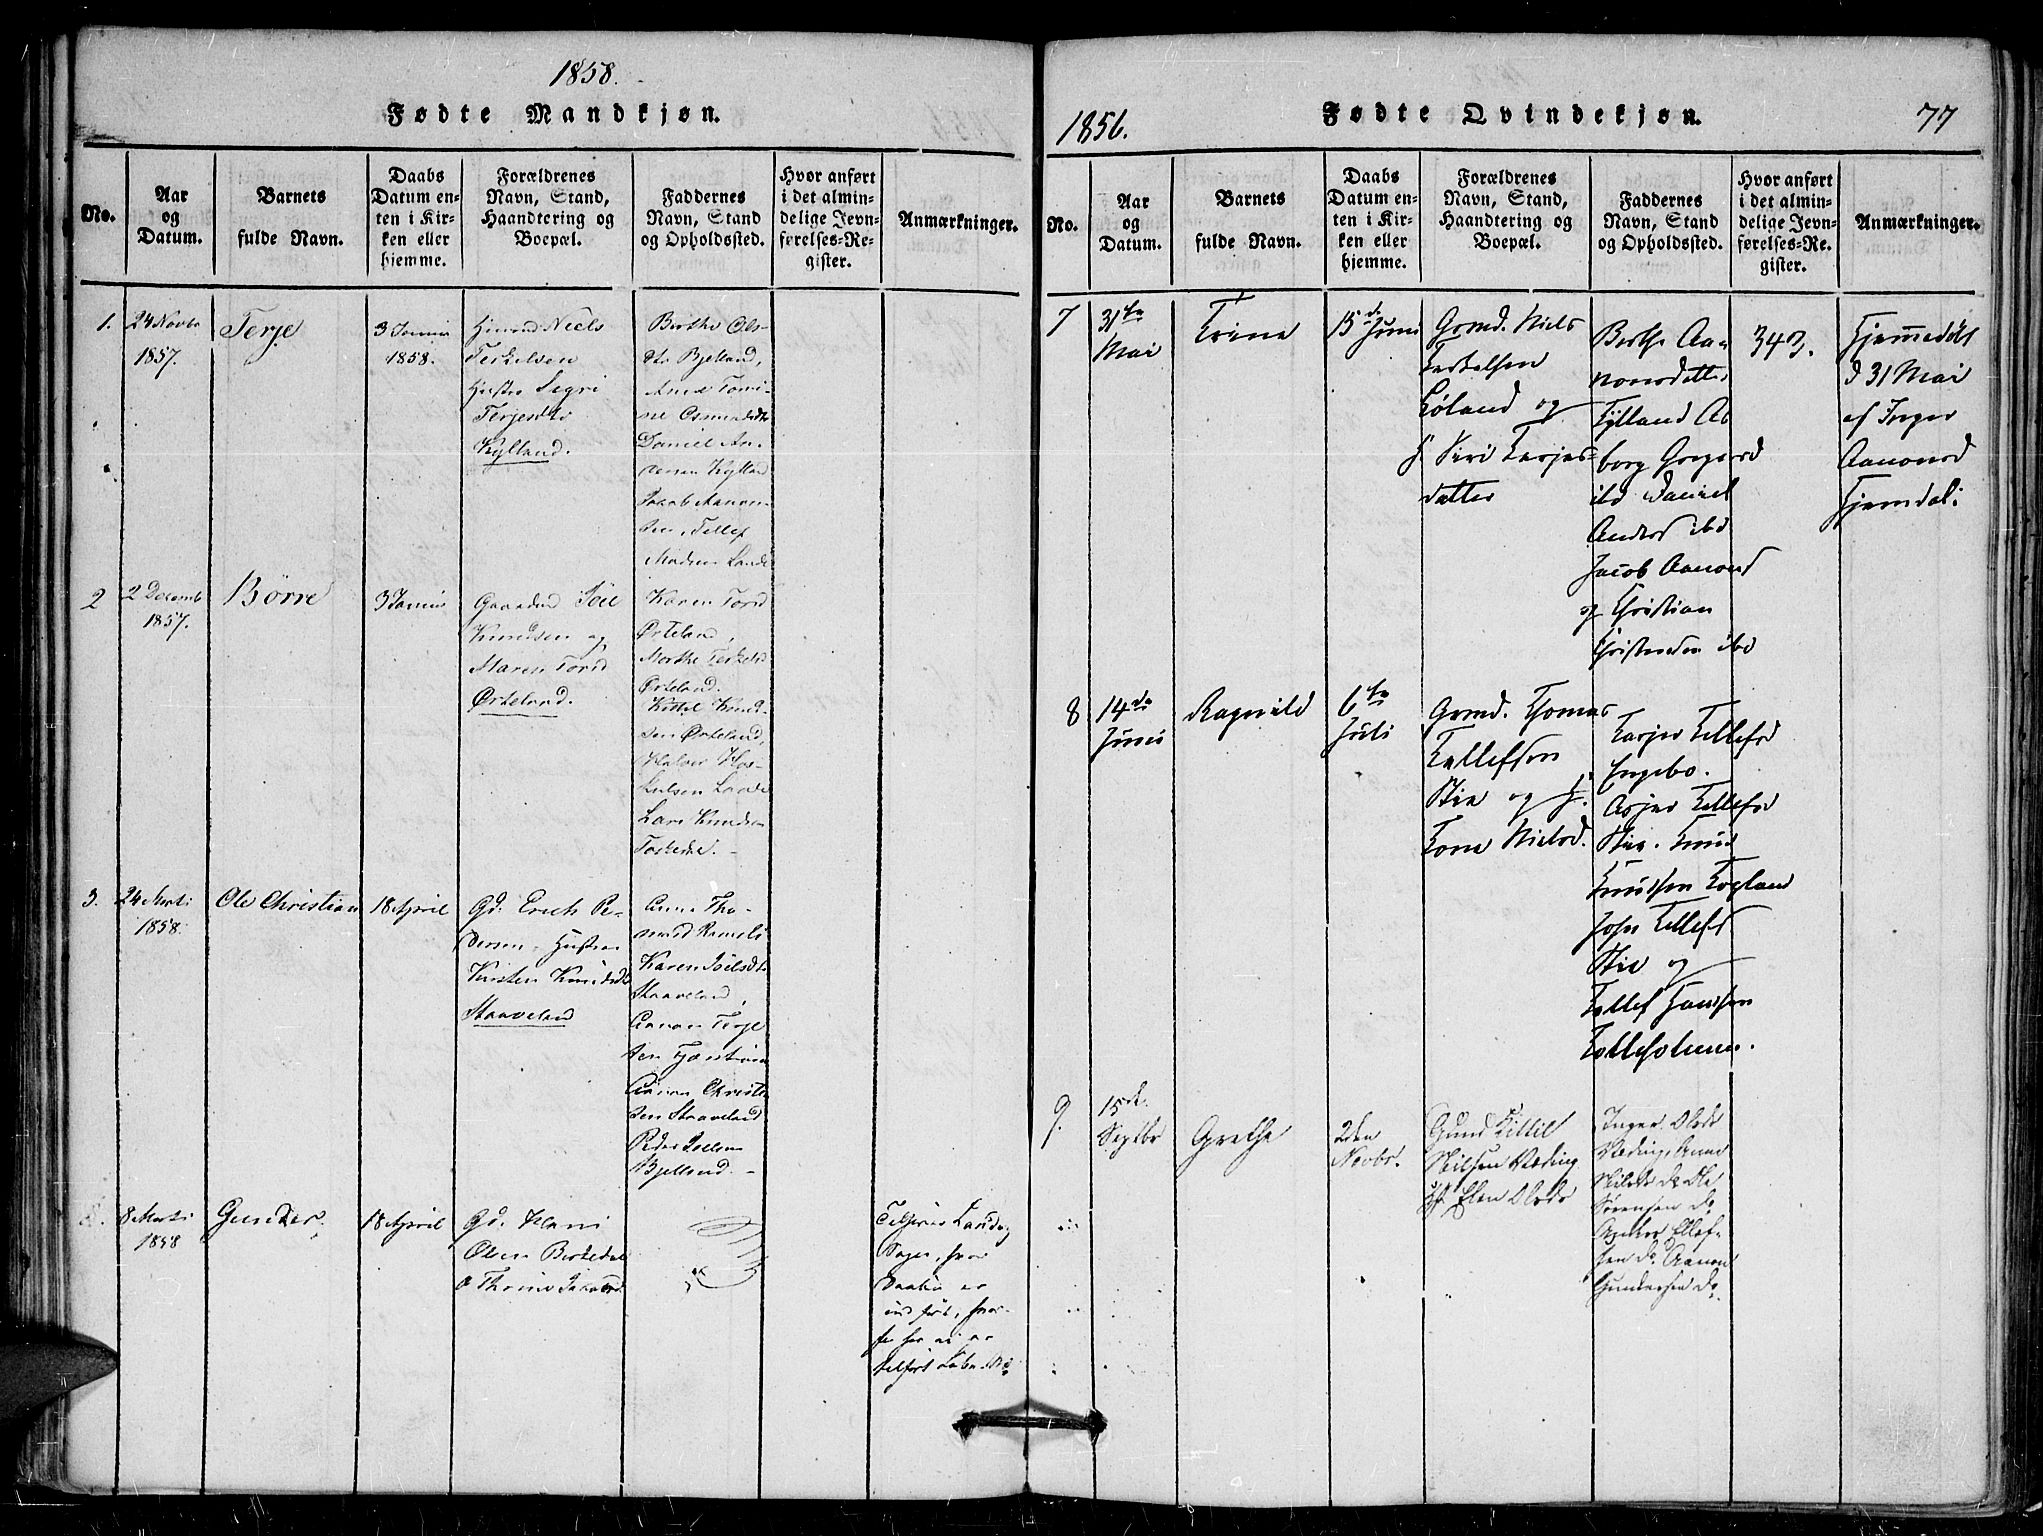 1858.
Fødte Mandkjøn.
No.
Aar
og
Datum.
Barnets
fulde Navn.
Daabs
Datum en-
ten i Kir-
ken eller
hjemme.
Forældrenes
Navn, Stand,
Haandtering og
Boepæl.
Faddernes
Navn, Stand
og Opholdssted.
Hvor anført
i det almin-
delige Jevn-
førelses-Re-
gister.
Anmærkninger.
1.
24 Novbr
1857.
Terje
3 Januar
1858.
Niels
Terkelsen
Hustru Segri
Terjesdtr
Kylland.
Berthe Ols-
dtr Bjelland,
Anne Tomi-
ne Osmundsdtr
Daniel An-
dersen Kylland
Jacob Aanon-
sen, Tellef
Madsen Lande
2
2 Decemb
1857.
Børre
3 Januar
Gaardmd Joel
Knudsen og
Maren Torsd
Ørteland.
Karen Torsd
Ørteland,
Marthe Terkelsd
Ørteland.
Kittel Knud-
sen Ørteland,
Halvor
Lande
Lars Knudsen
3.
24 Marti
1858.
Ole Christian
18 April
Gd. Erich Pe-
dersen, Hustru
Kirsten Knudsdtr
Staaveland
Anne Tho-
masd
Karen Joelsdtr
Staaveland,
Aanon Terje
sen
Aanon Christen
sen Staaveland
Peder Joelsen
Bjelland. -
8 Marti
1858
Gunder,
18 April
Gd. Hans
Olsen Birkedal
Daaben er
indført,
1856.
Fødte Qvindekjøn.
77
No.
Aar
og
Datum.
Barnets
fulde Navn.
Daabs
Datum en-
ten i Kir-
ken eller
hjemme.
Forældrenes
Navn, Stand,
Haandtering og
Boepæl.
Faddernes
Navn, Stand
og Opholdssted.
Hvor anført
i det almin-
delige Jevn-
førelses-Re-
gister.
Anmærkninger.
7
31te
Mai
Trine
15de Juni
Grmd. Niels
Terkelsen
og
H. Siri Terjes-
datter
Berthe Aa-
nonsdatter
Kylland As
borg Gregersd
ibd Daniel
Anders ibd
Jacob Aanons
og Christian
Christensen ibd
343.
Hjemmedøbt
d 31 Mai
af Inger
Aanonsd
Hjemdal.
8
14de
Juni
Ragnild
6te
Juli
Grmd. Thomas
Tellefsen
Stie og H.
Tone Nielsd.
Terjer Tellefsd
Engebo.
Asjer Tellefsd
Stie. Knud
Knudsen Kogland
John Tellefs
Stie og
Tellef Hansen
9.
15de
Septbr
Grethe
2den
Novbr.
Gmd Kittil
Nilsen Væding
H. Elen Olsdr
Inger Olsdr
Væding, Anne
Nilsdr do Ole
Sørensen do
Anders Ellef-
sen do. Aanon
Gundersen do.